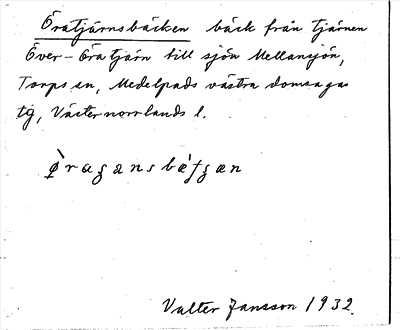 Öratjärnsbäcken bäck från tjärnen
Över-Öratjärn till sjön Mellansjön,
Torps sn, Medelpads västra domsagas
tg, Västernorrlands l.
ø̀ragansbæ̀ʃgæn
Valter Jansson 1932.